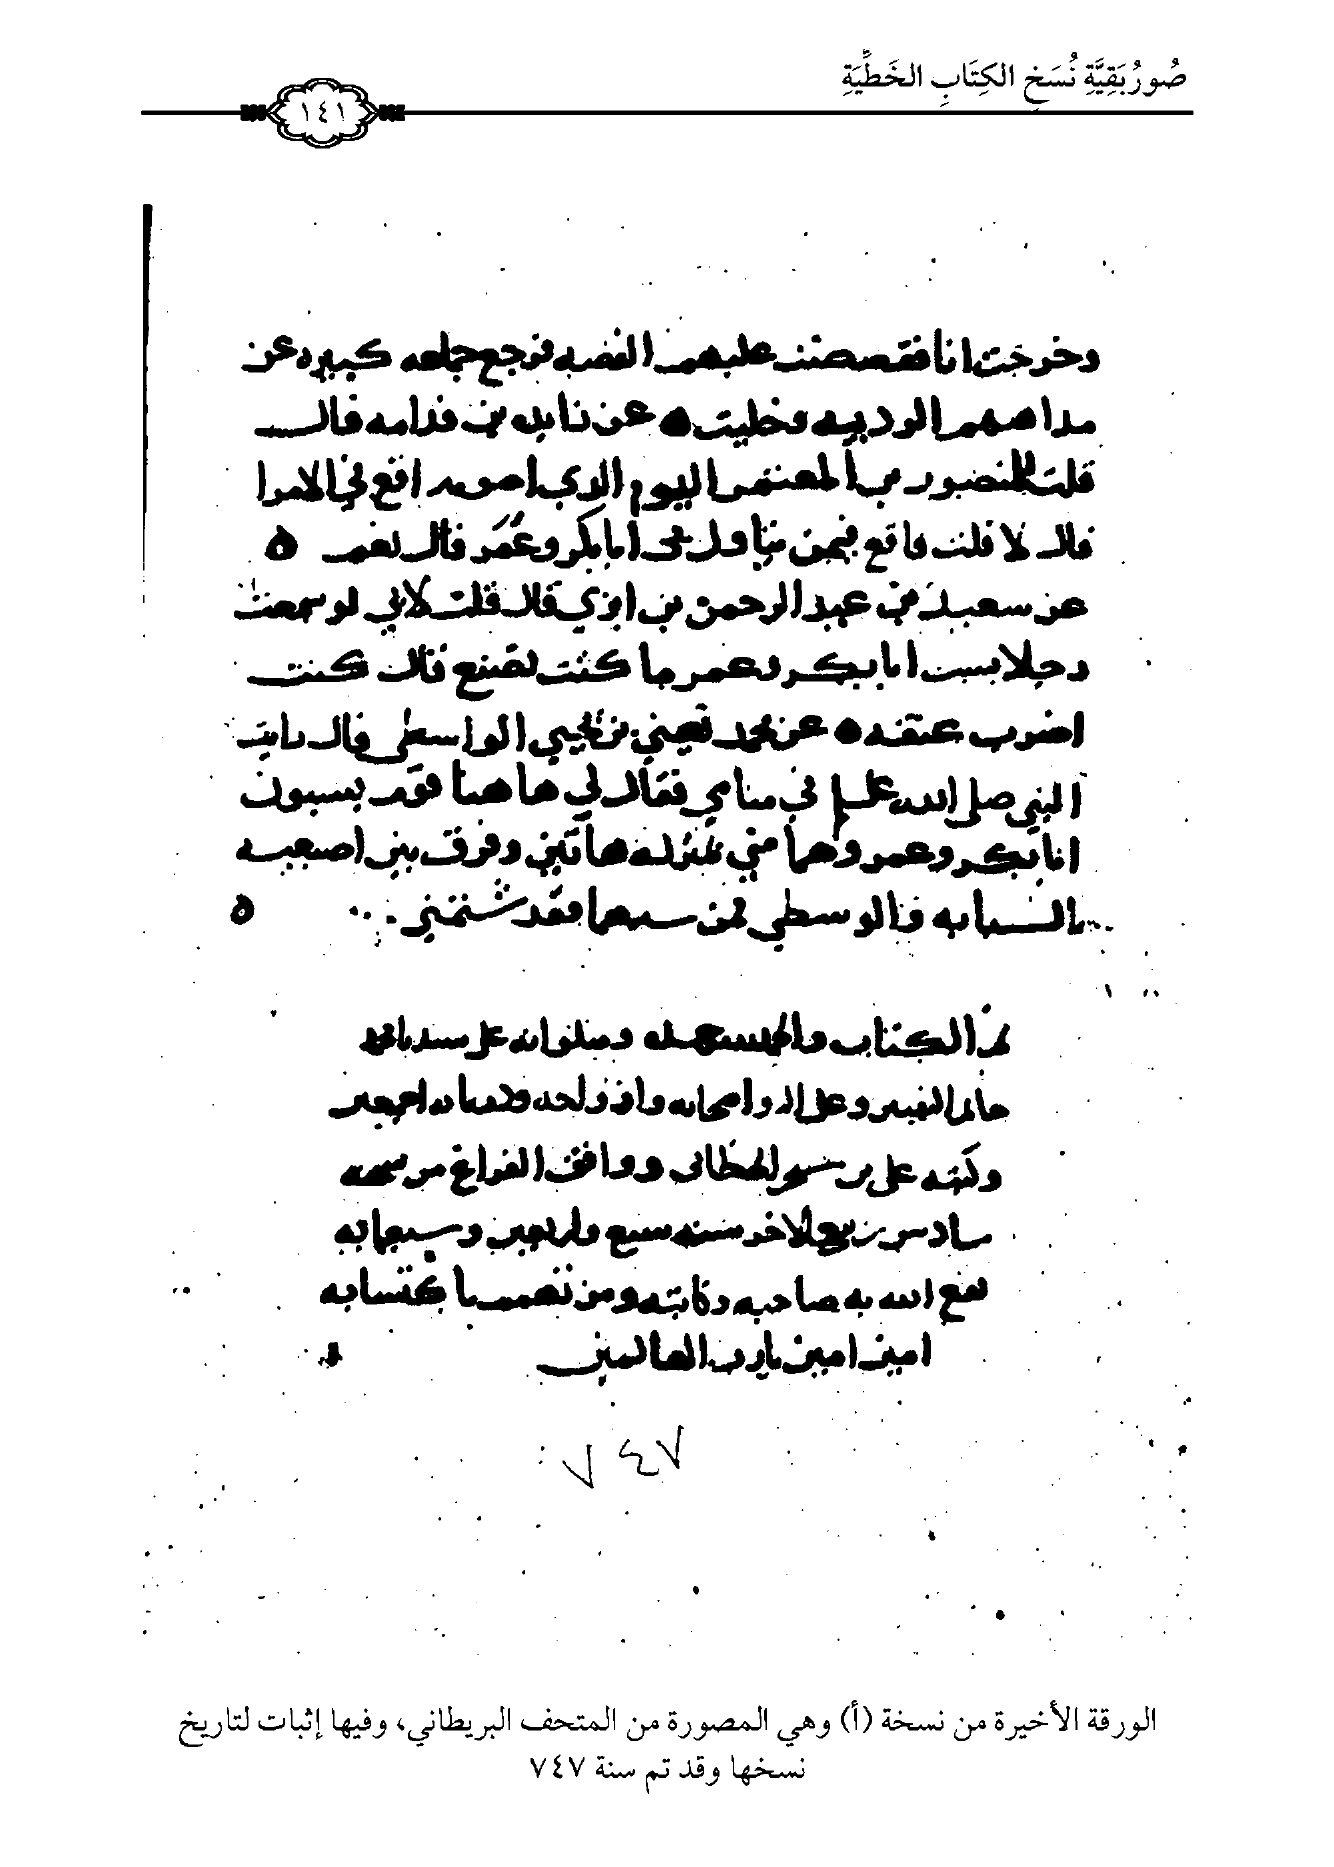 صُورُ بَقِيَّةِ نُسَخِ الكِتَابِ الخَطِّيَّةِ
١٤١
وخرجت انا فقصصت عليهم القصه فرجع جماعه كبيره عن
مداهبهم الرديه وخليت ٥ عن زايده بن قدامه قال
قلت لمنصور بن المعتمر اليوم الذي اصومه اقع في الامرا
قال لا قلت فاقع فيمن يتاول ابا بكر وعمر قال نعم ٥
عن سعيد بن عبد الرحمن بن ابزي قال قلت لابي لو سمعت
رجلا يسب ابا بكر وعمر ما كنت تصنع قال كنت
اضرب عنقه ٥ عن محمد يعني بن يحيي الواسطي قال رايت
النبي صلى الله عليه في منامي فقال لي هاهنا قوم يسبون
ابا بكر وعمر وهما مني بمنزله هاتين وفرق بين اصبعيه
السبابه والوسطي فمن سبهما فقد شتمني ٥
تم الكتاب والحمد لله وصلواته على سيدنا محمد
خاتم النبيين وعلى اله واصحابه وازواجه وذرياته اجمعين
وكتبه علي بن ووافق الفراغ من نسخه
سادس ربيع الاخر سنه سبع واربعين وسبعمايه
نفع الله به صاحبه وكاتبه ومن باكتسابه
امين امين يا رب العالمين
٧٤٧
الورقة الأخيرة من نسخة (أ) وهي المصورة من المتحف البريطاني، وفيها إثبات لتاريخ
نسخها وقد تم سنة ٧٤٧